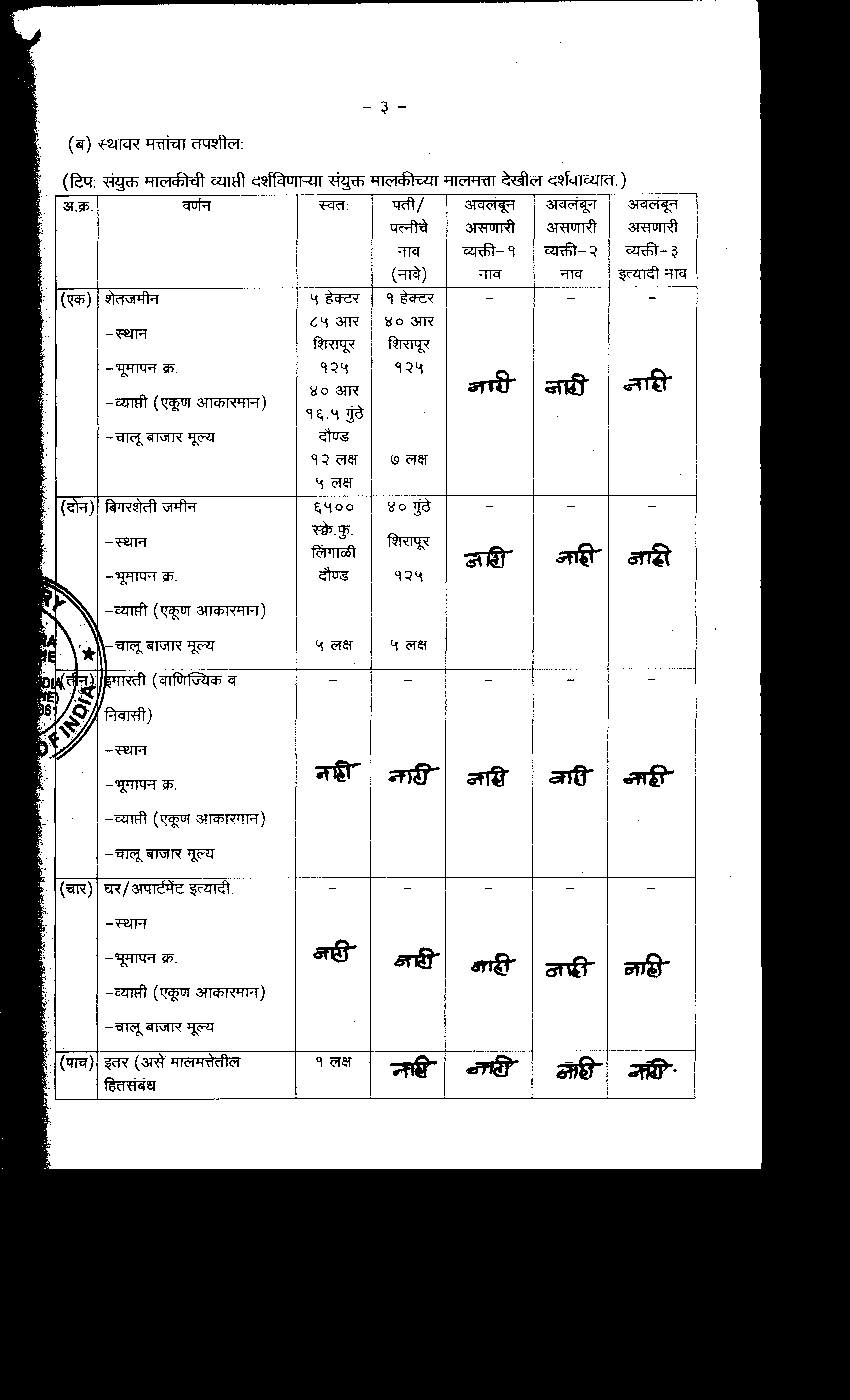 - ३ -
(ब) स्थावर मत्तांचा तपशील:
(टिप: संयुक्त मालकीची व्याप्ती दर्शविणाऱ्या संयुक्त मालकीच्या मालमत्ता देखील दर्शवाव्यात.)
अ.क्र. वर्णन स्वत: पती/ अवलंबून अवलंबून अवलंबून
पत्नीचे असणारी असणारी असणारी
नाव व्यक्ती-१ व्यक्ती-२ व्यक्ती-३
(नावे) नाव नाव इत्यादी नाव
(एक) शेतजमीन ५ हेक्टर १ हेक्टर - - -
-स्थान ८५ आर ४० आर
शिरापूर शिरापूर
-भूमापन क्र. १२५ १२५ नाही नाही नाही
-व्याप्ती (एकूण आकारमान) ४० आर
१६.५ गुंठे
-चालू बाजार मूल्य दौण्ड
१२ लक्ष ७ लक्ष
५ लक्ष
(दोन) बिगरशेती जमीन ६५०० ४० गुंठे - - -
-स्थान स्क्वे.फु. शिरापूर
लिंगाळी नाही नाही नाही
-भूमापन क्र. दौण्ड १२५
-व्याप्ती (एकूण आकारमान)
-चालू बाजार मूल्य ५ लक्ष ५ लक्ष
(तीन) इमारती (वाणिज्यिक व - - - - -
निवासी)
-स्थान
नाही नाही नाही नाही नाही
-भूमापन क्र.
-व्याप्ती (एकूण आकारमान)
-चालू बाजार मूल्य
(चार) घर/अपार्टमेंट इत्यादी. - - - - -
-स्थान
-भूमापन क्र. नाही नाही नाही नाही नाही
-व्याप्ती (एकूण आकारमान)
-चालू बाजार मूल्य
(पाच) इतर (असे मालमत्तेतील १ लक्ष नाही नाही नाही नाही.
हितसंबंध
OF INDIA